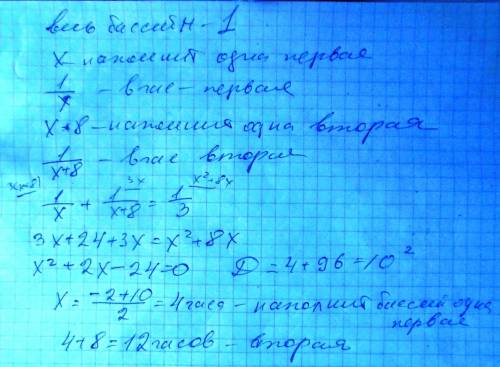 весь бассейн - 1
x наполнит одна первая
1/x - в час - первая
x+8 - наполнит одна вторая
1/(x+8) - в час вторая
1/x + 1/(x+8) = 1/3
3x+24+3x=x²+8x
x²+2x-24=0 D=4+96=10²
x= (-2+10)/2 =4 часа - наполнит бассейн одна первая
4+8=12 часов - вторая